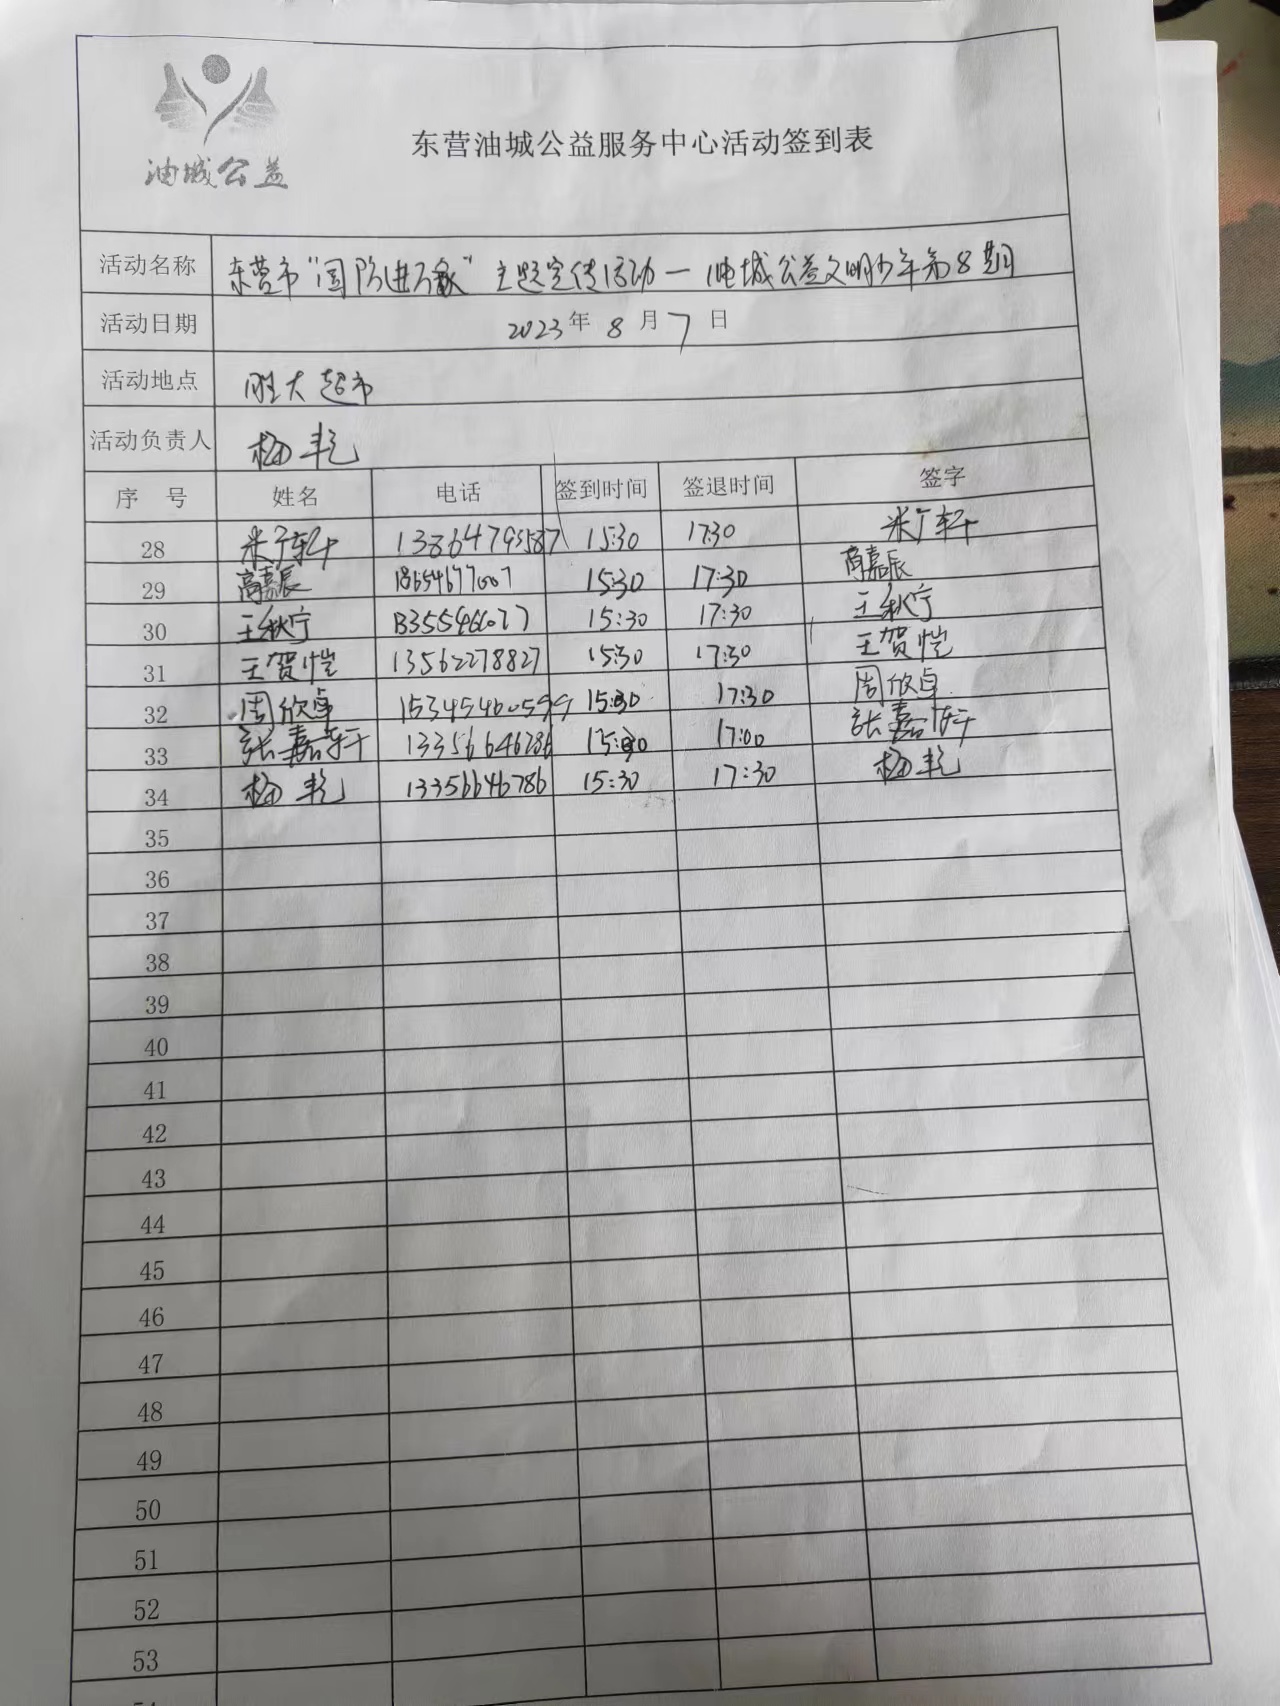 油城公益
东营油城公益服务中心活动签到表
活动名称 东营市"国防进万家"主题宣传活动一油城公益文明少年第8期
活动日期 2023年8月7日
活动地点 胜大超市
活动负责人 杨艳
序 号 姓名 电话 签到时间 签退时间 签字
28 米广轩 13864793587 15:30 17:30 米广轩
29 商嘉辰 18654677007 15:30 17:30 商嘉辰
30 王秋宁 15:30 17:30 王秋宁
31 王贺恺 13562278827 15:30 17:30 王贺恺
32 周欣卓 15345460599 15:30 17:30 周欣卓
33 张嘉轩 13356646786 17:00 张嘉轩
34 杨艳 13356646786 15:30 17:30 杨艳
35
36
37
38
39
40
41
42
43
44
45
46
47
48
49
50
51
52
53